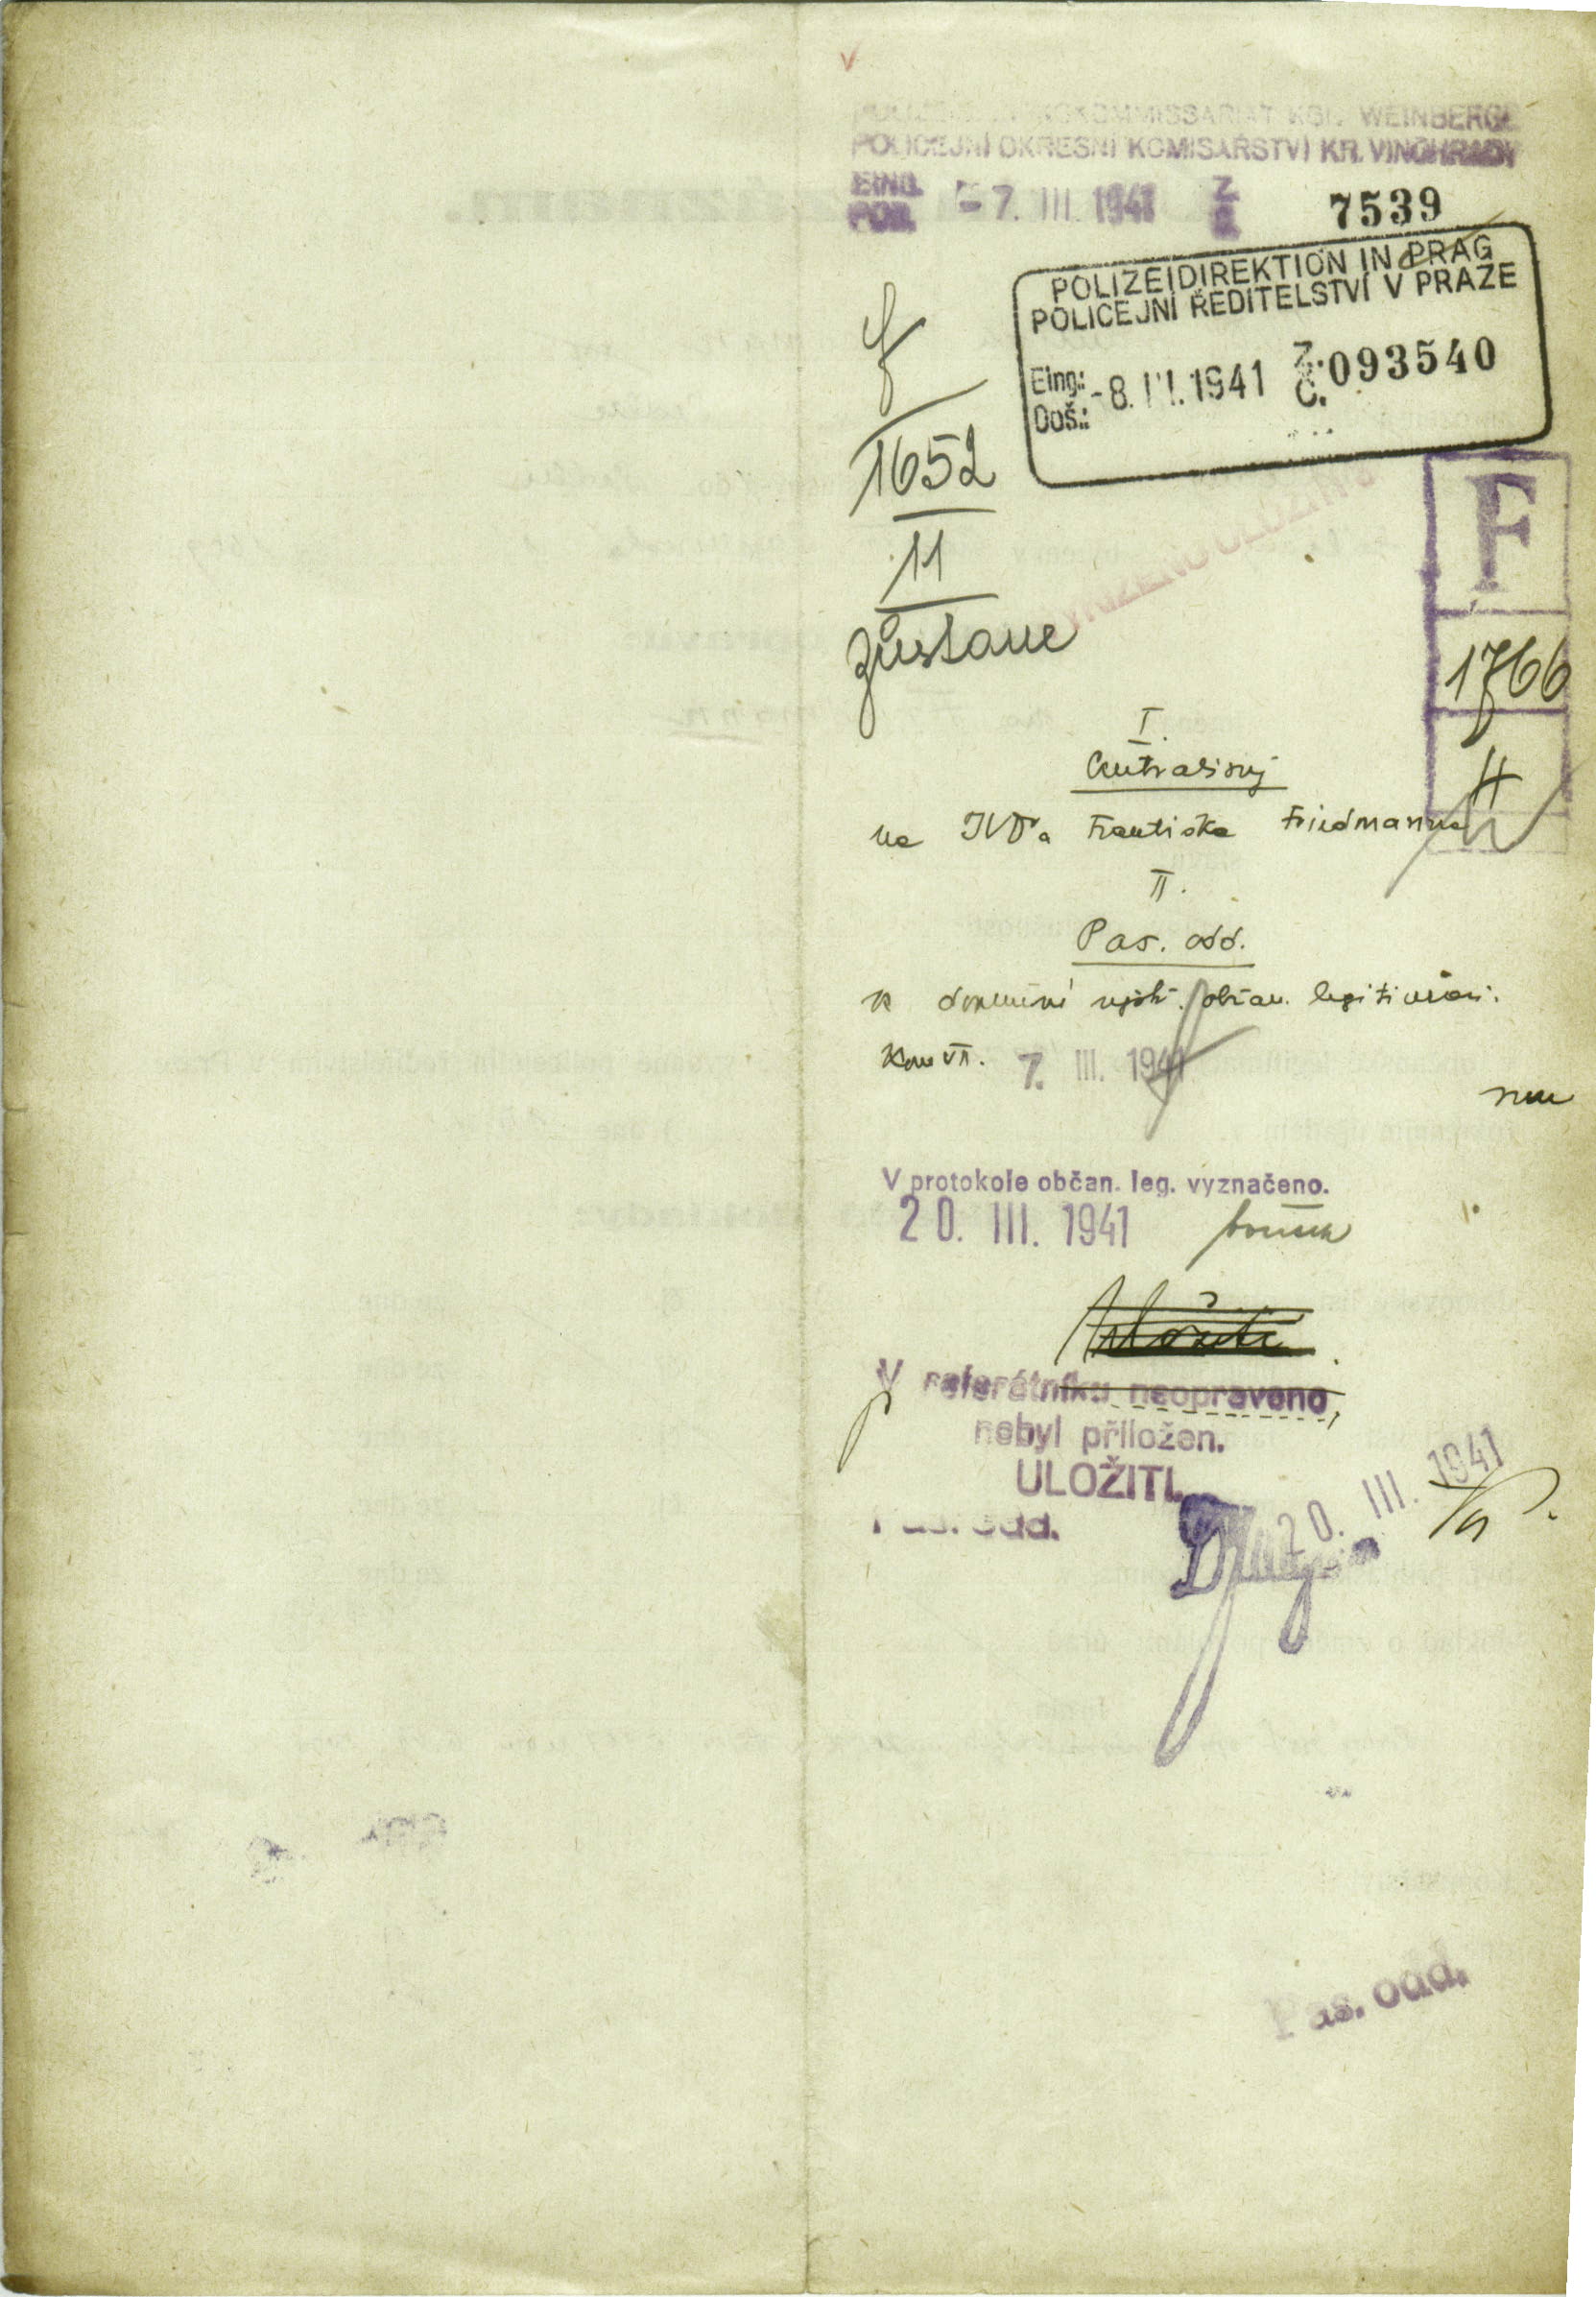 POLIZEI KOMMISSARIAT KGL. WEINBERGE
POLICEJNÍ OKRESNÍ KOMISAŘSTVÍ KR. VINOHRADY
EING. - 7. III. 1941 Z 7539
POD. Č
POLIZEIDIREKTION IN PRAG
POLICEJNÍ ŘEDITELSTVÍ V PRAZE
Eing.: - 8. III. 1941 Z. 093540
Doš.: Č.
F
1652
11
zůstane
F
1766
4
I.
na JUDra Františka Friedmanna
II.
Pas. odd.
k občan. legitimaci.
Kom VII. 7. III. 1941
V protokole občan. leg. vyznačeno.
20. III. 1941
Uložiti
V referátníku neopraveno,
nebyl přiložen.
ULOŽITI.
Pas. odd. 20. III. 1941
Pas. odd.